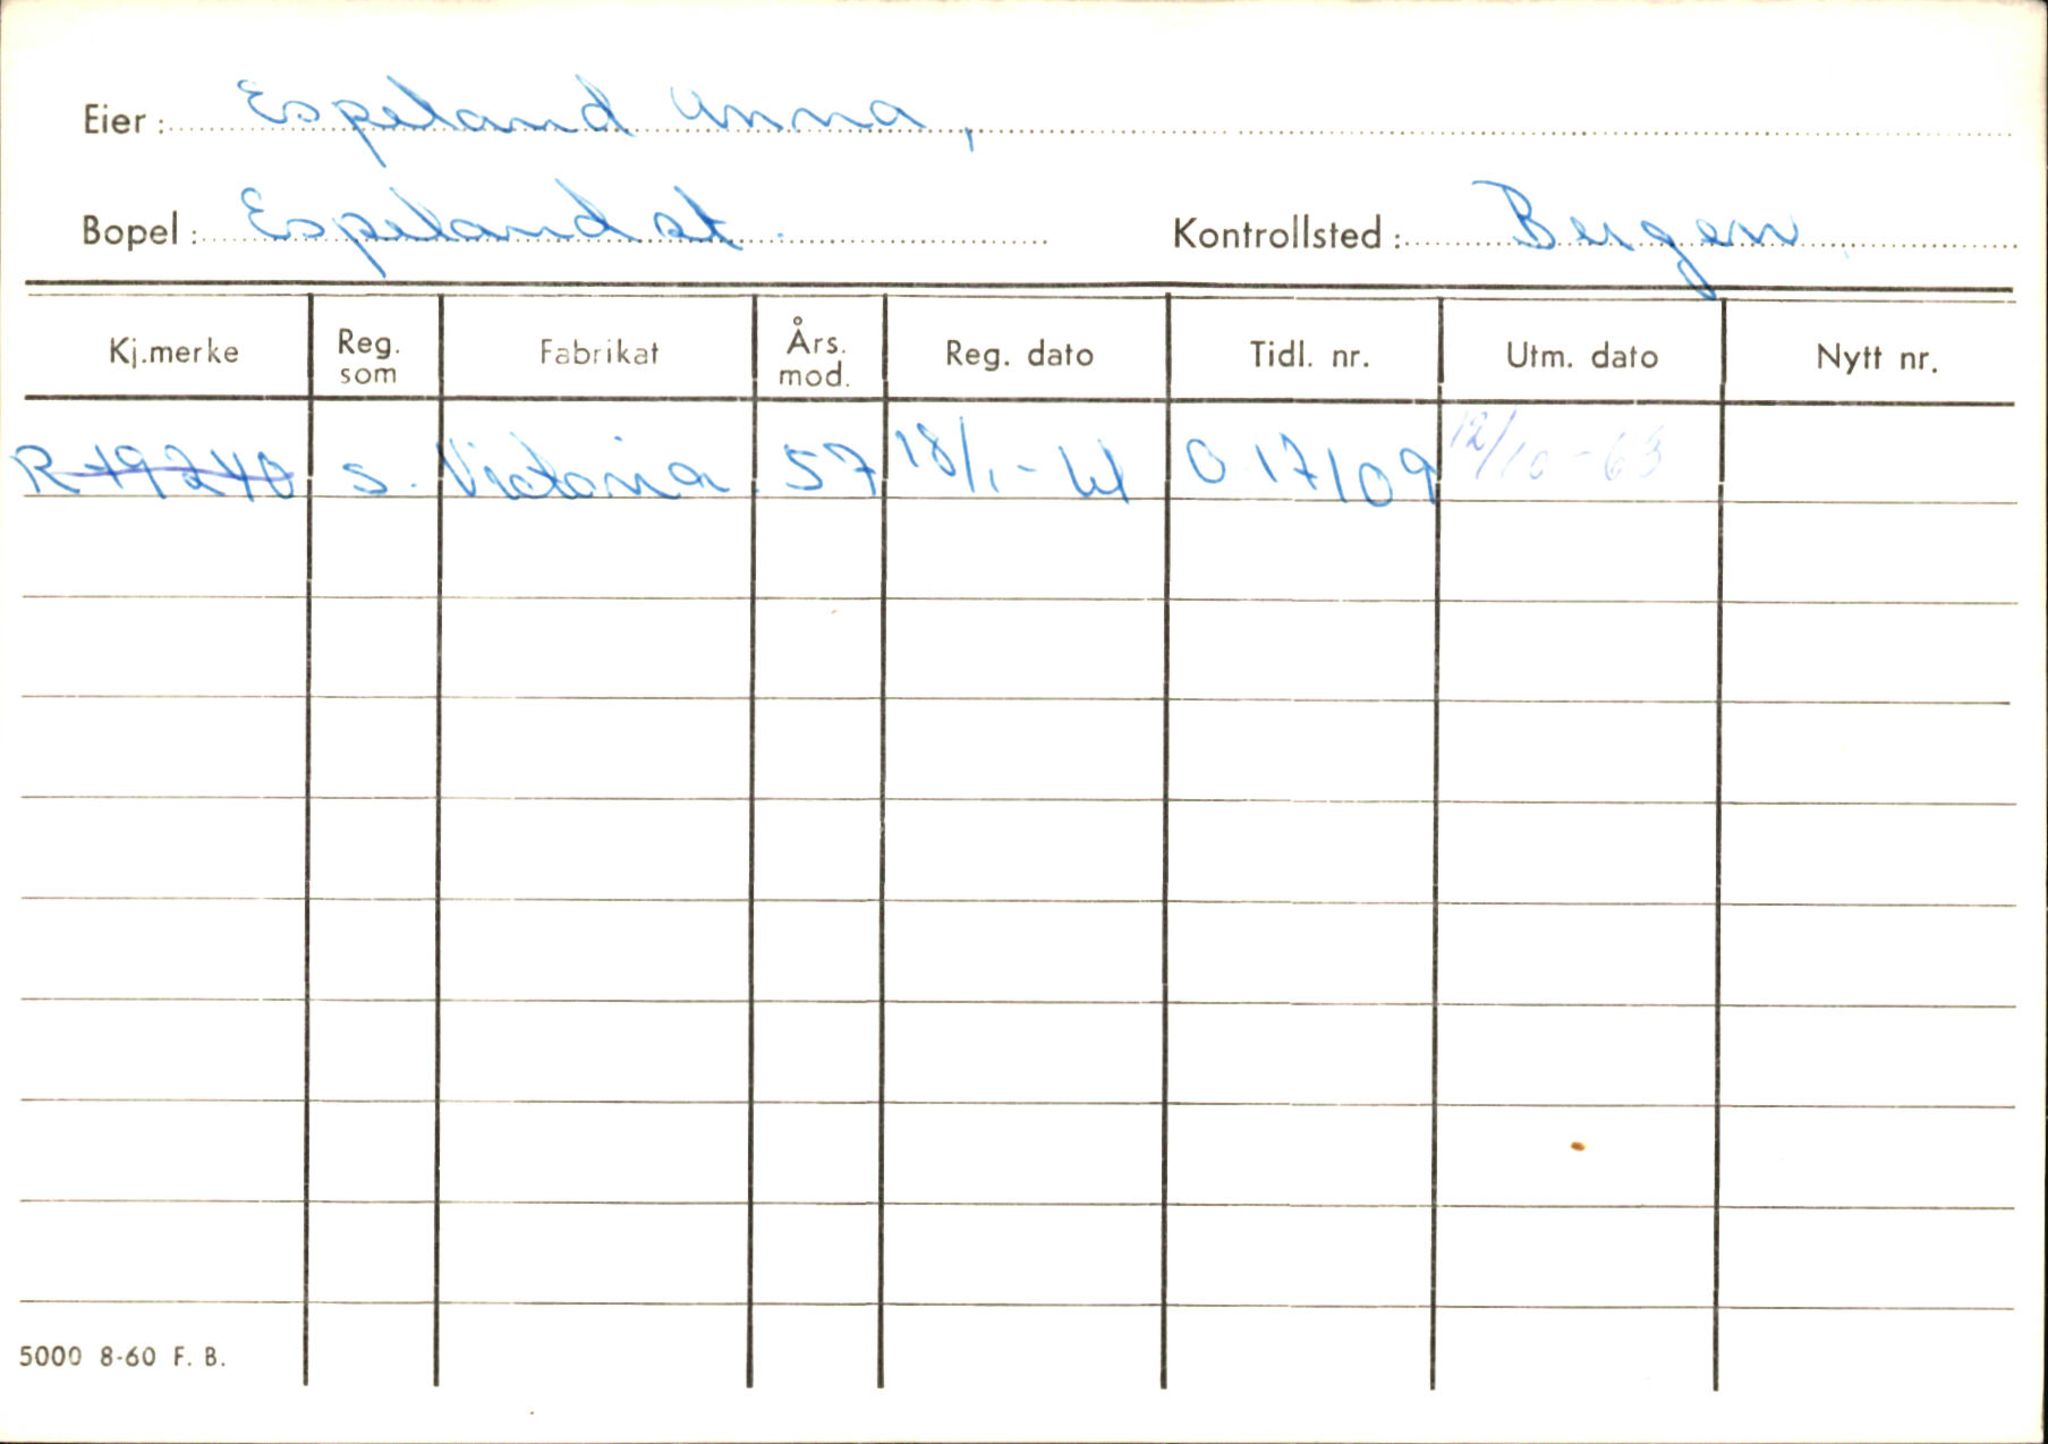 Eier: Espeland Anna,
Bopel: Espeland st. Kontrollsted: Bergen
Kj.merke Reg. som Fabrikat Års. mod. Reg. dato Tidl. nr. Utm. dato Nytt nr.
R-19240 s. Victoria 57 18/1-61 O 17109 12/10-63
5000 8-60 F. B.